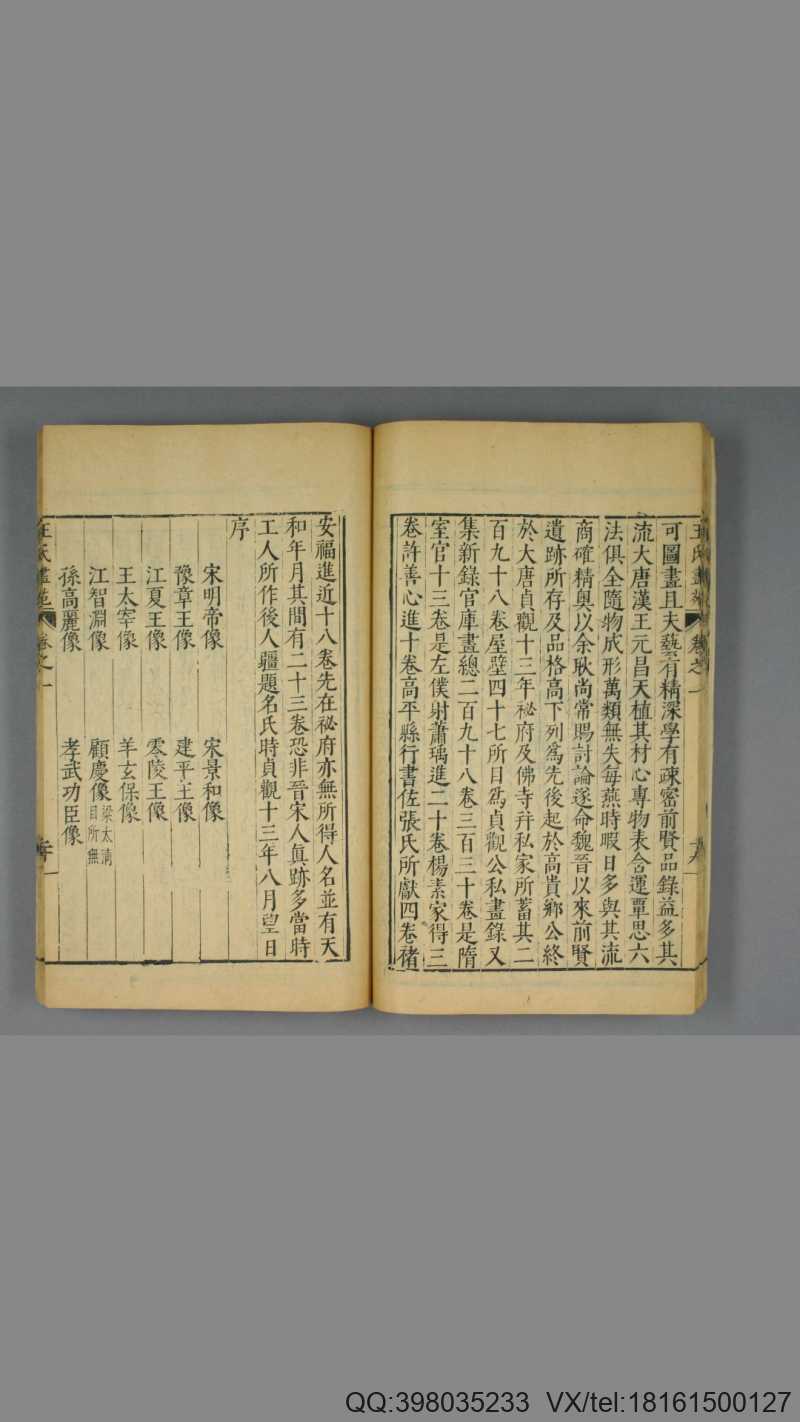 王氏畫苑 卷之一
可圖畫且夫藝有精深學有疎密前賢品錄益多其
流大唐漢王元昌天植其材心專物表含運覃思六
法俱全隨物成形萬類無失每燕時暇日多與其流
商確精奥以余耿尚常賜討論遂命魏晉以來前賢
遺跡所存及品格高下列爲先後起於高貴鄉公終
於大唐貞觀十三年祕府及佛寺幷私家所蓄其二
百九十八卷屋壁四十七所目爲貞觀公私畫錄又
集新錄官庫畫總二百九十八卷三百三十卷是隋
室官十三卷是左僕射蕭瑀進二十卷楊素家得三
卷許善心進十卷高平縣行書佐張氏所獻四卷褚
安福進近十八卷先在祕府亦無所得人名並有天
和年月其間有二十三卷恐非晉宋人眞跡多當時
工人所作後人疆題名氏時貞觀十三年八月望日
序
宋明帝像 宋景和像
豫章王像 建平王像
江夏王像 零陵王像
王太宰像 羊玄保像
江智淵像 顧慶像梁太清目所無
孫高麗像 孝武功臣像
王氏畫苑 卷之一
QQ:398035233 VX/tel:18161500127